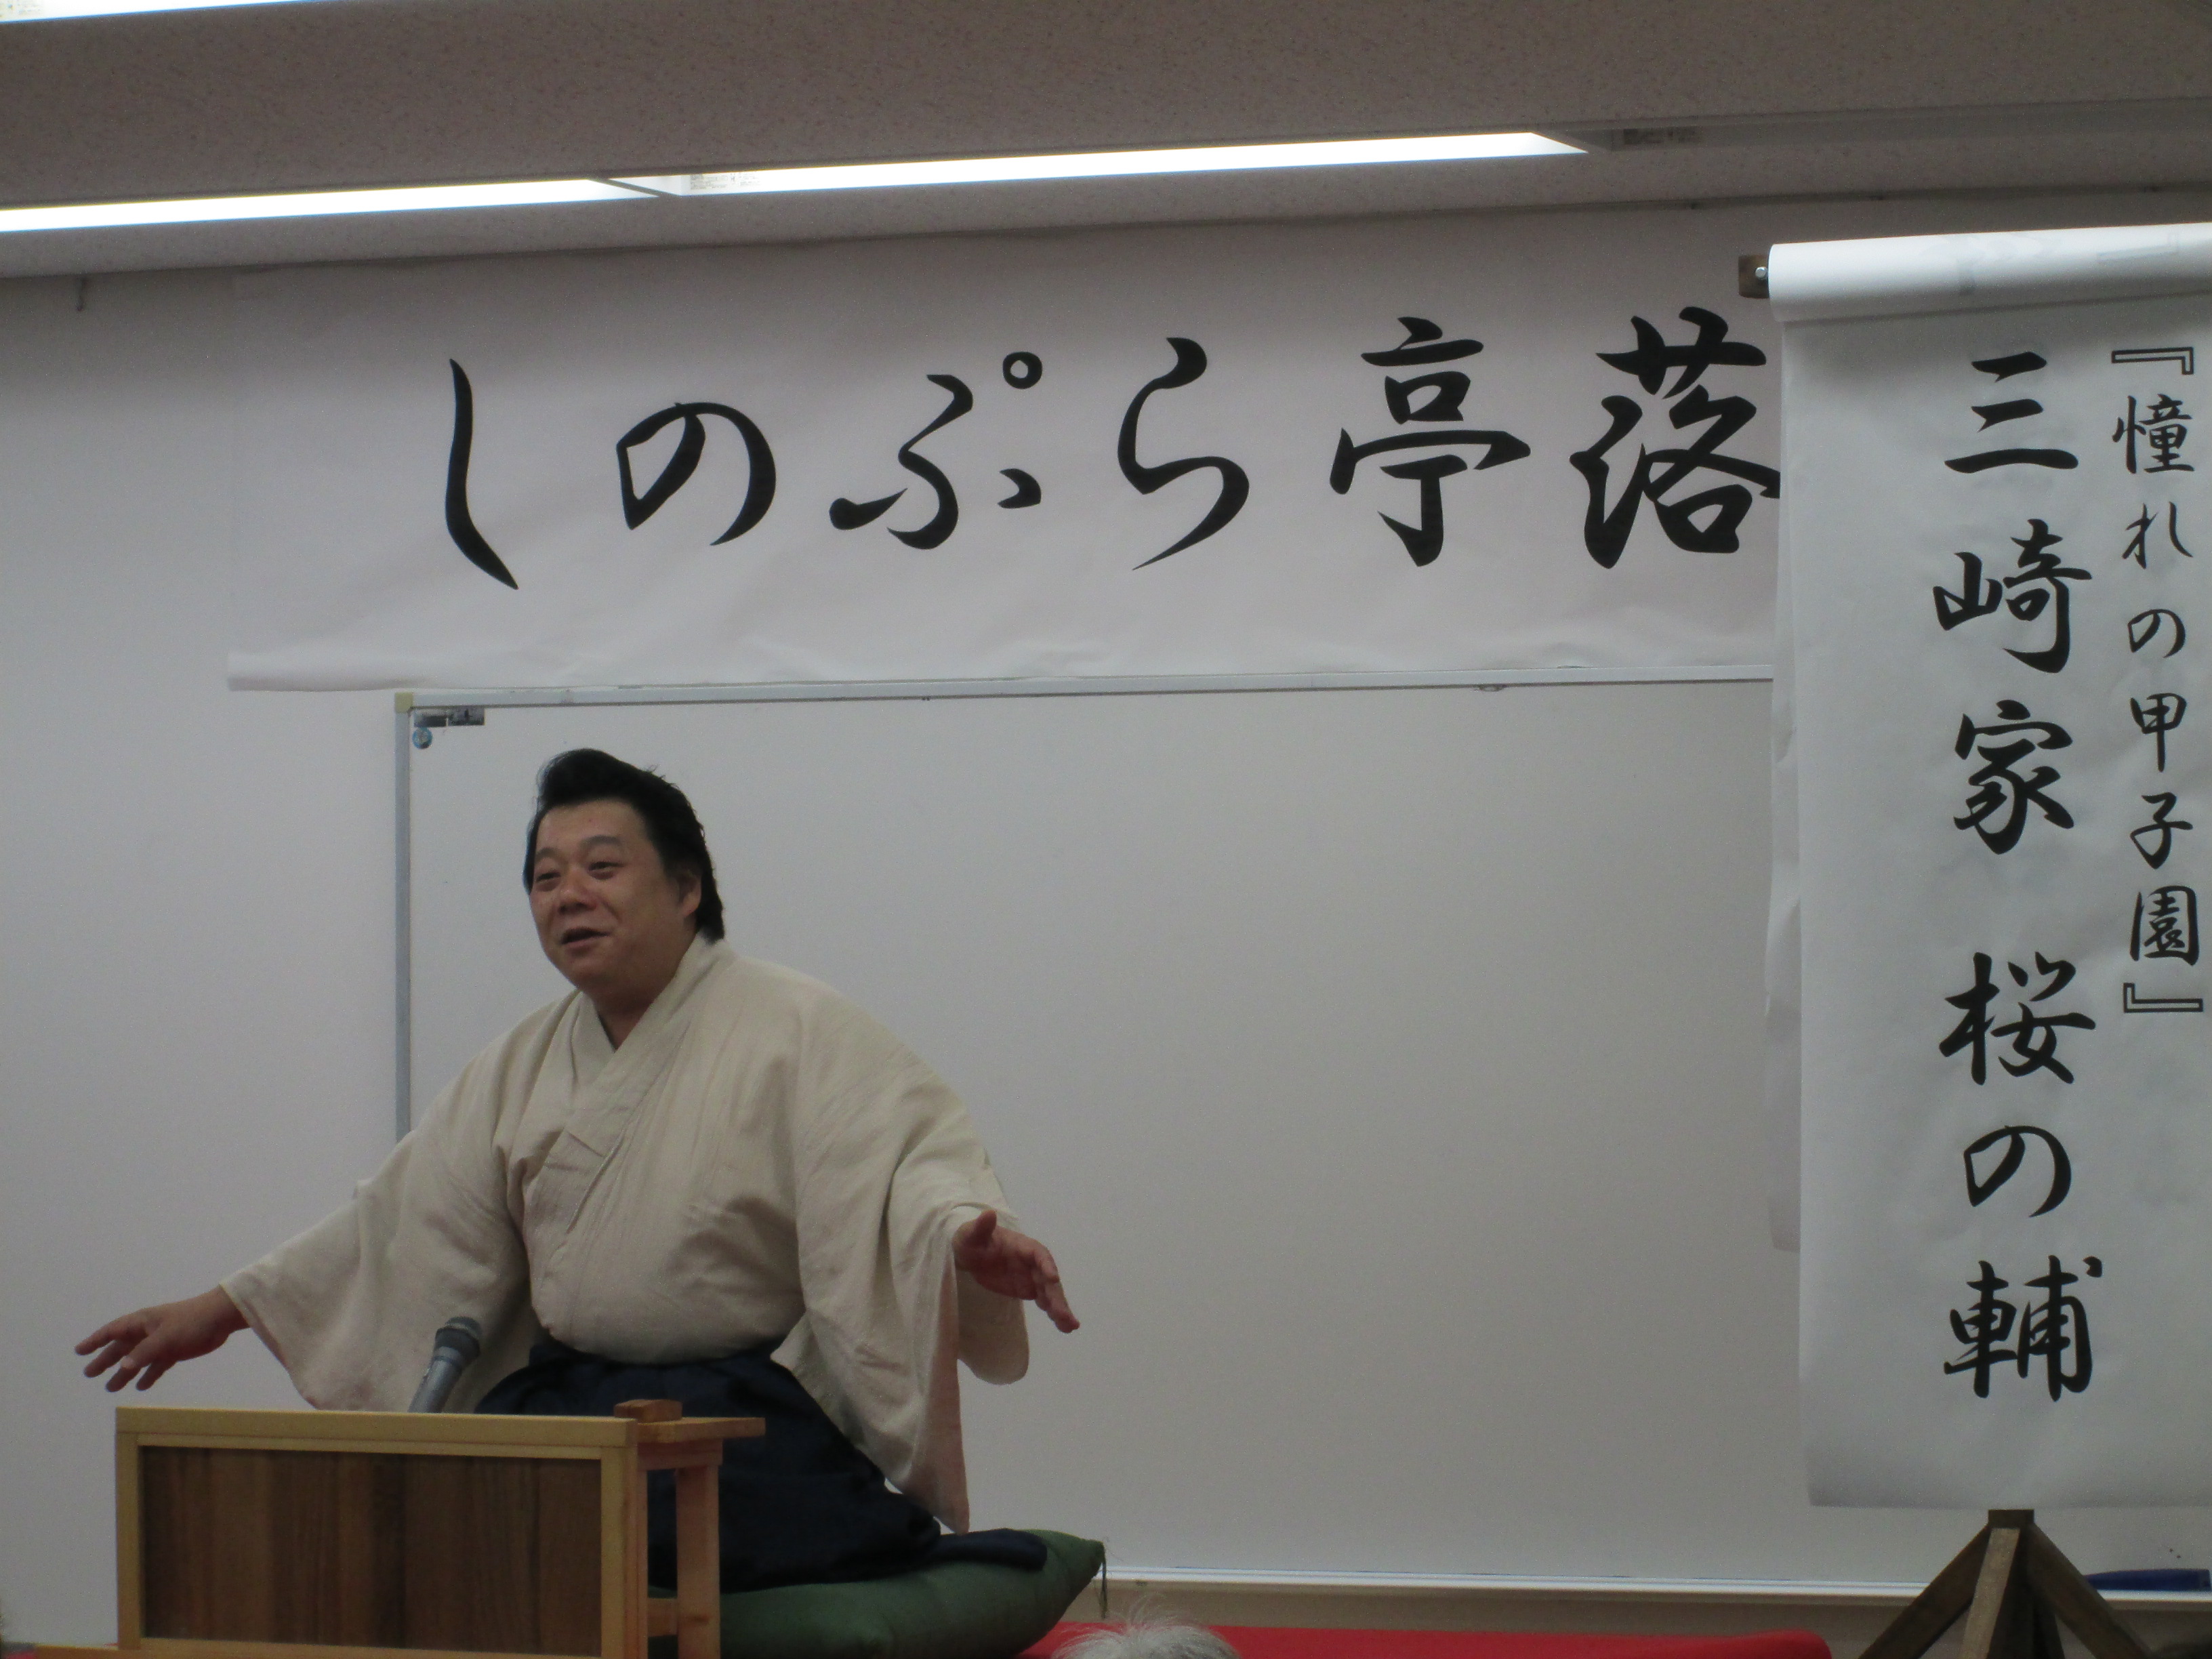 しのぷら亭落
『憧れの甲子園』
三崎家 桜の輔